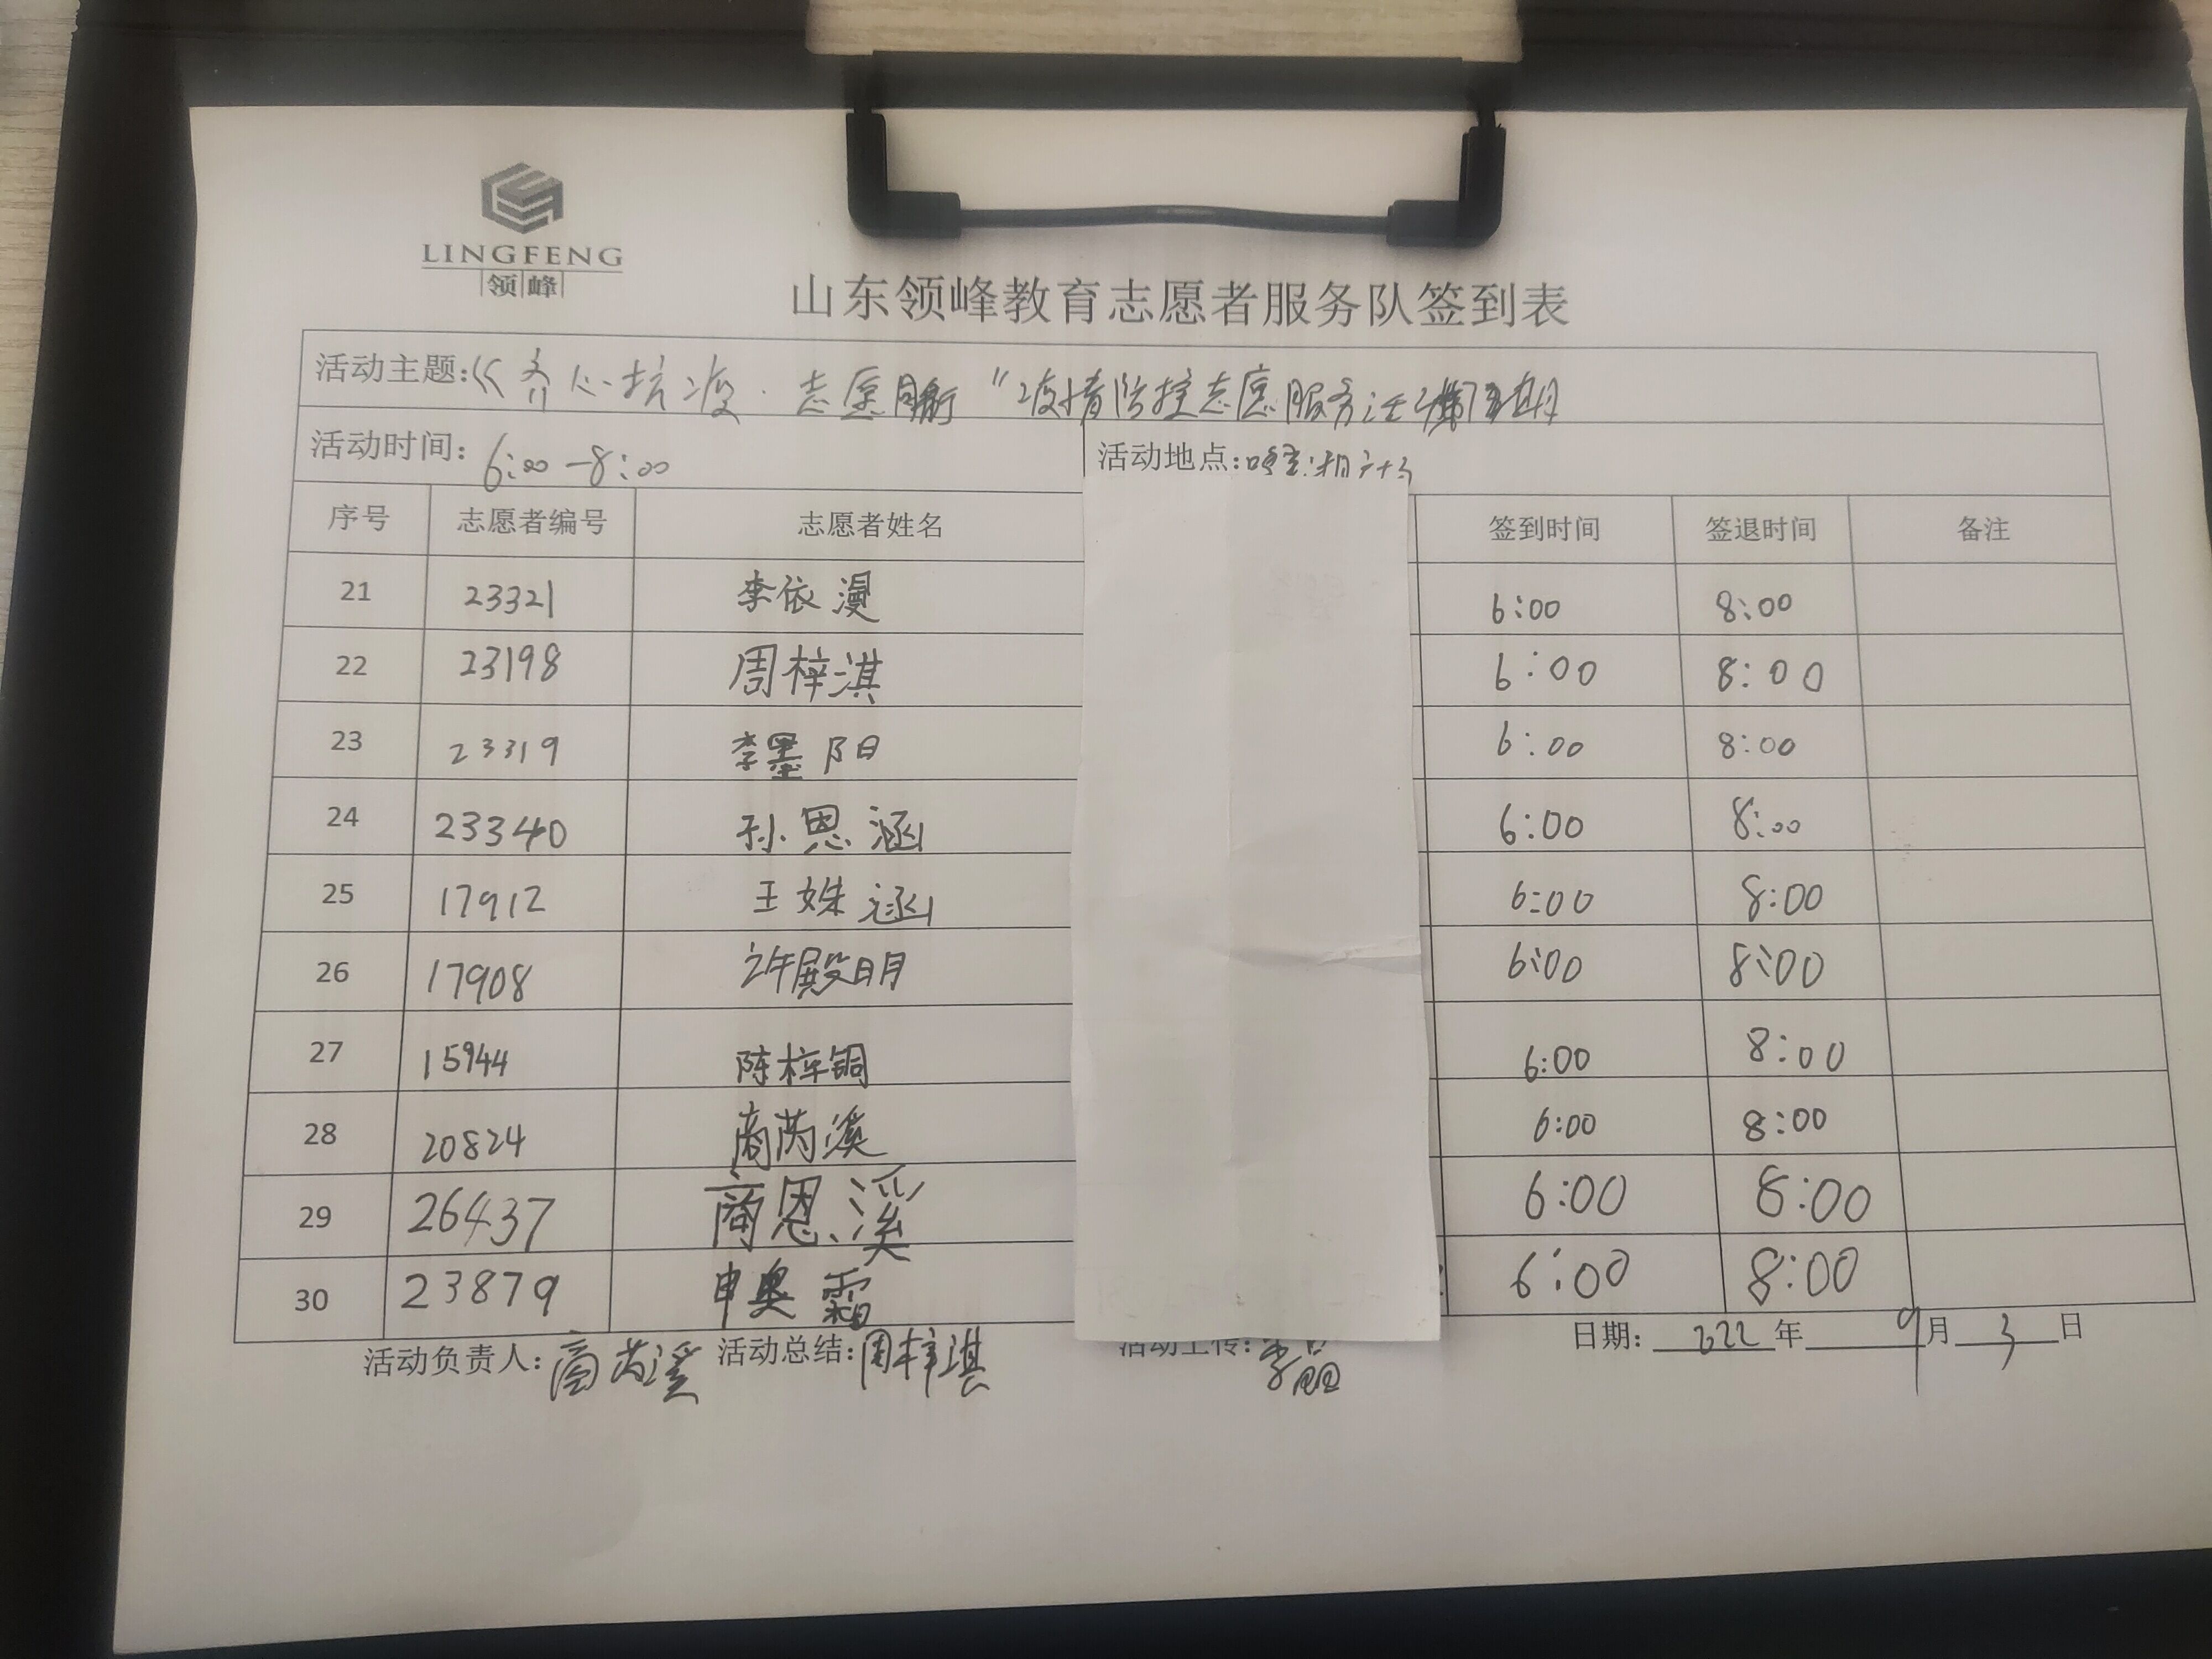 LINGFENG
领峰
山东领峰教育志愿者服务队签到表
活动主题:《齐心抗疫·志愿同行"疫情防控志愿服务活动第
活动时间: 6:00—8:00 活动地点:
序号 志愿者编号 志愿者姓名 签到时间 签退时间 备注
21 23321 李依漫 6:00 8:00
22 23198 周梓淇 6:00 8:00
23 23319 李墨阳 6:00 8:00
24 23340 孙恩涵 6:00 8:00
25 17912 王姝涵 6:00 8:00
26 17908 许殿明 6:00 8:00
27 15944 陈梓铜 6:00 8:00
28 20824 商芮溪 6:00 8:00
29 26437 商恩溪 6:00 8:00
30 23879 申奥霜 6:00 8:00
活动负责人:商芮溪 活动总结:周梓淇 活动上传:李 日期: 年 9月 3日